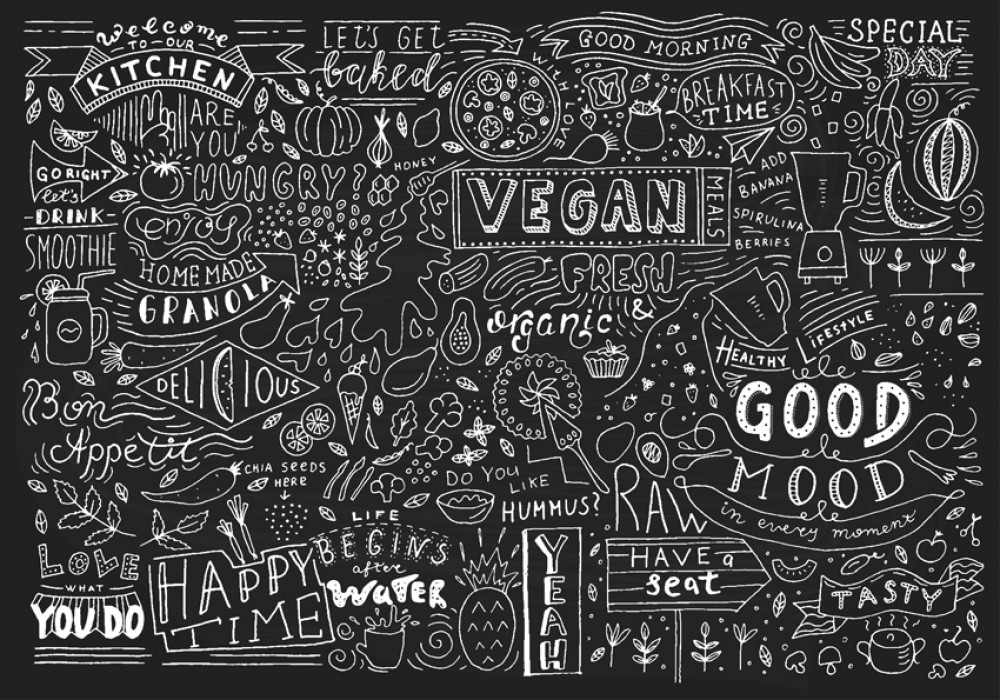 welcome
TO OUR
KITCHEN
LET'S GET
baked
GOOD MORNING
SPECIAL
DAY
BREAKFAST
TIME
WITH LOVE
ARE
YOU
HUNGRY?
GO RIGHT
let's
DRINK
SMOOTHIE
HONEY
VEGAN
MEALS
ADD
BANANA
SPIRULINA
BERRIES
enjoy
HOMEMADE
GRANOLA
FRESH
&
organic
HEALTHY
LIFESTYLE
DELICIOUS
Bon
Appétit
GOOD
MOOD
in every moment
CHIA SEEDS
HERE
DO YOU
LIKE
HUMMUS?
RAW
LOVE
WHAT
YOU DO
HAPPY
TIME
LIFE
BEGINS
after
WATER
YEAH
HAVE a
seat
TASTY